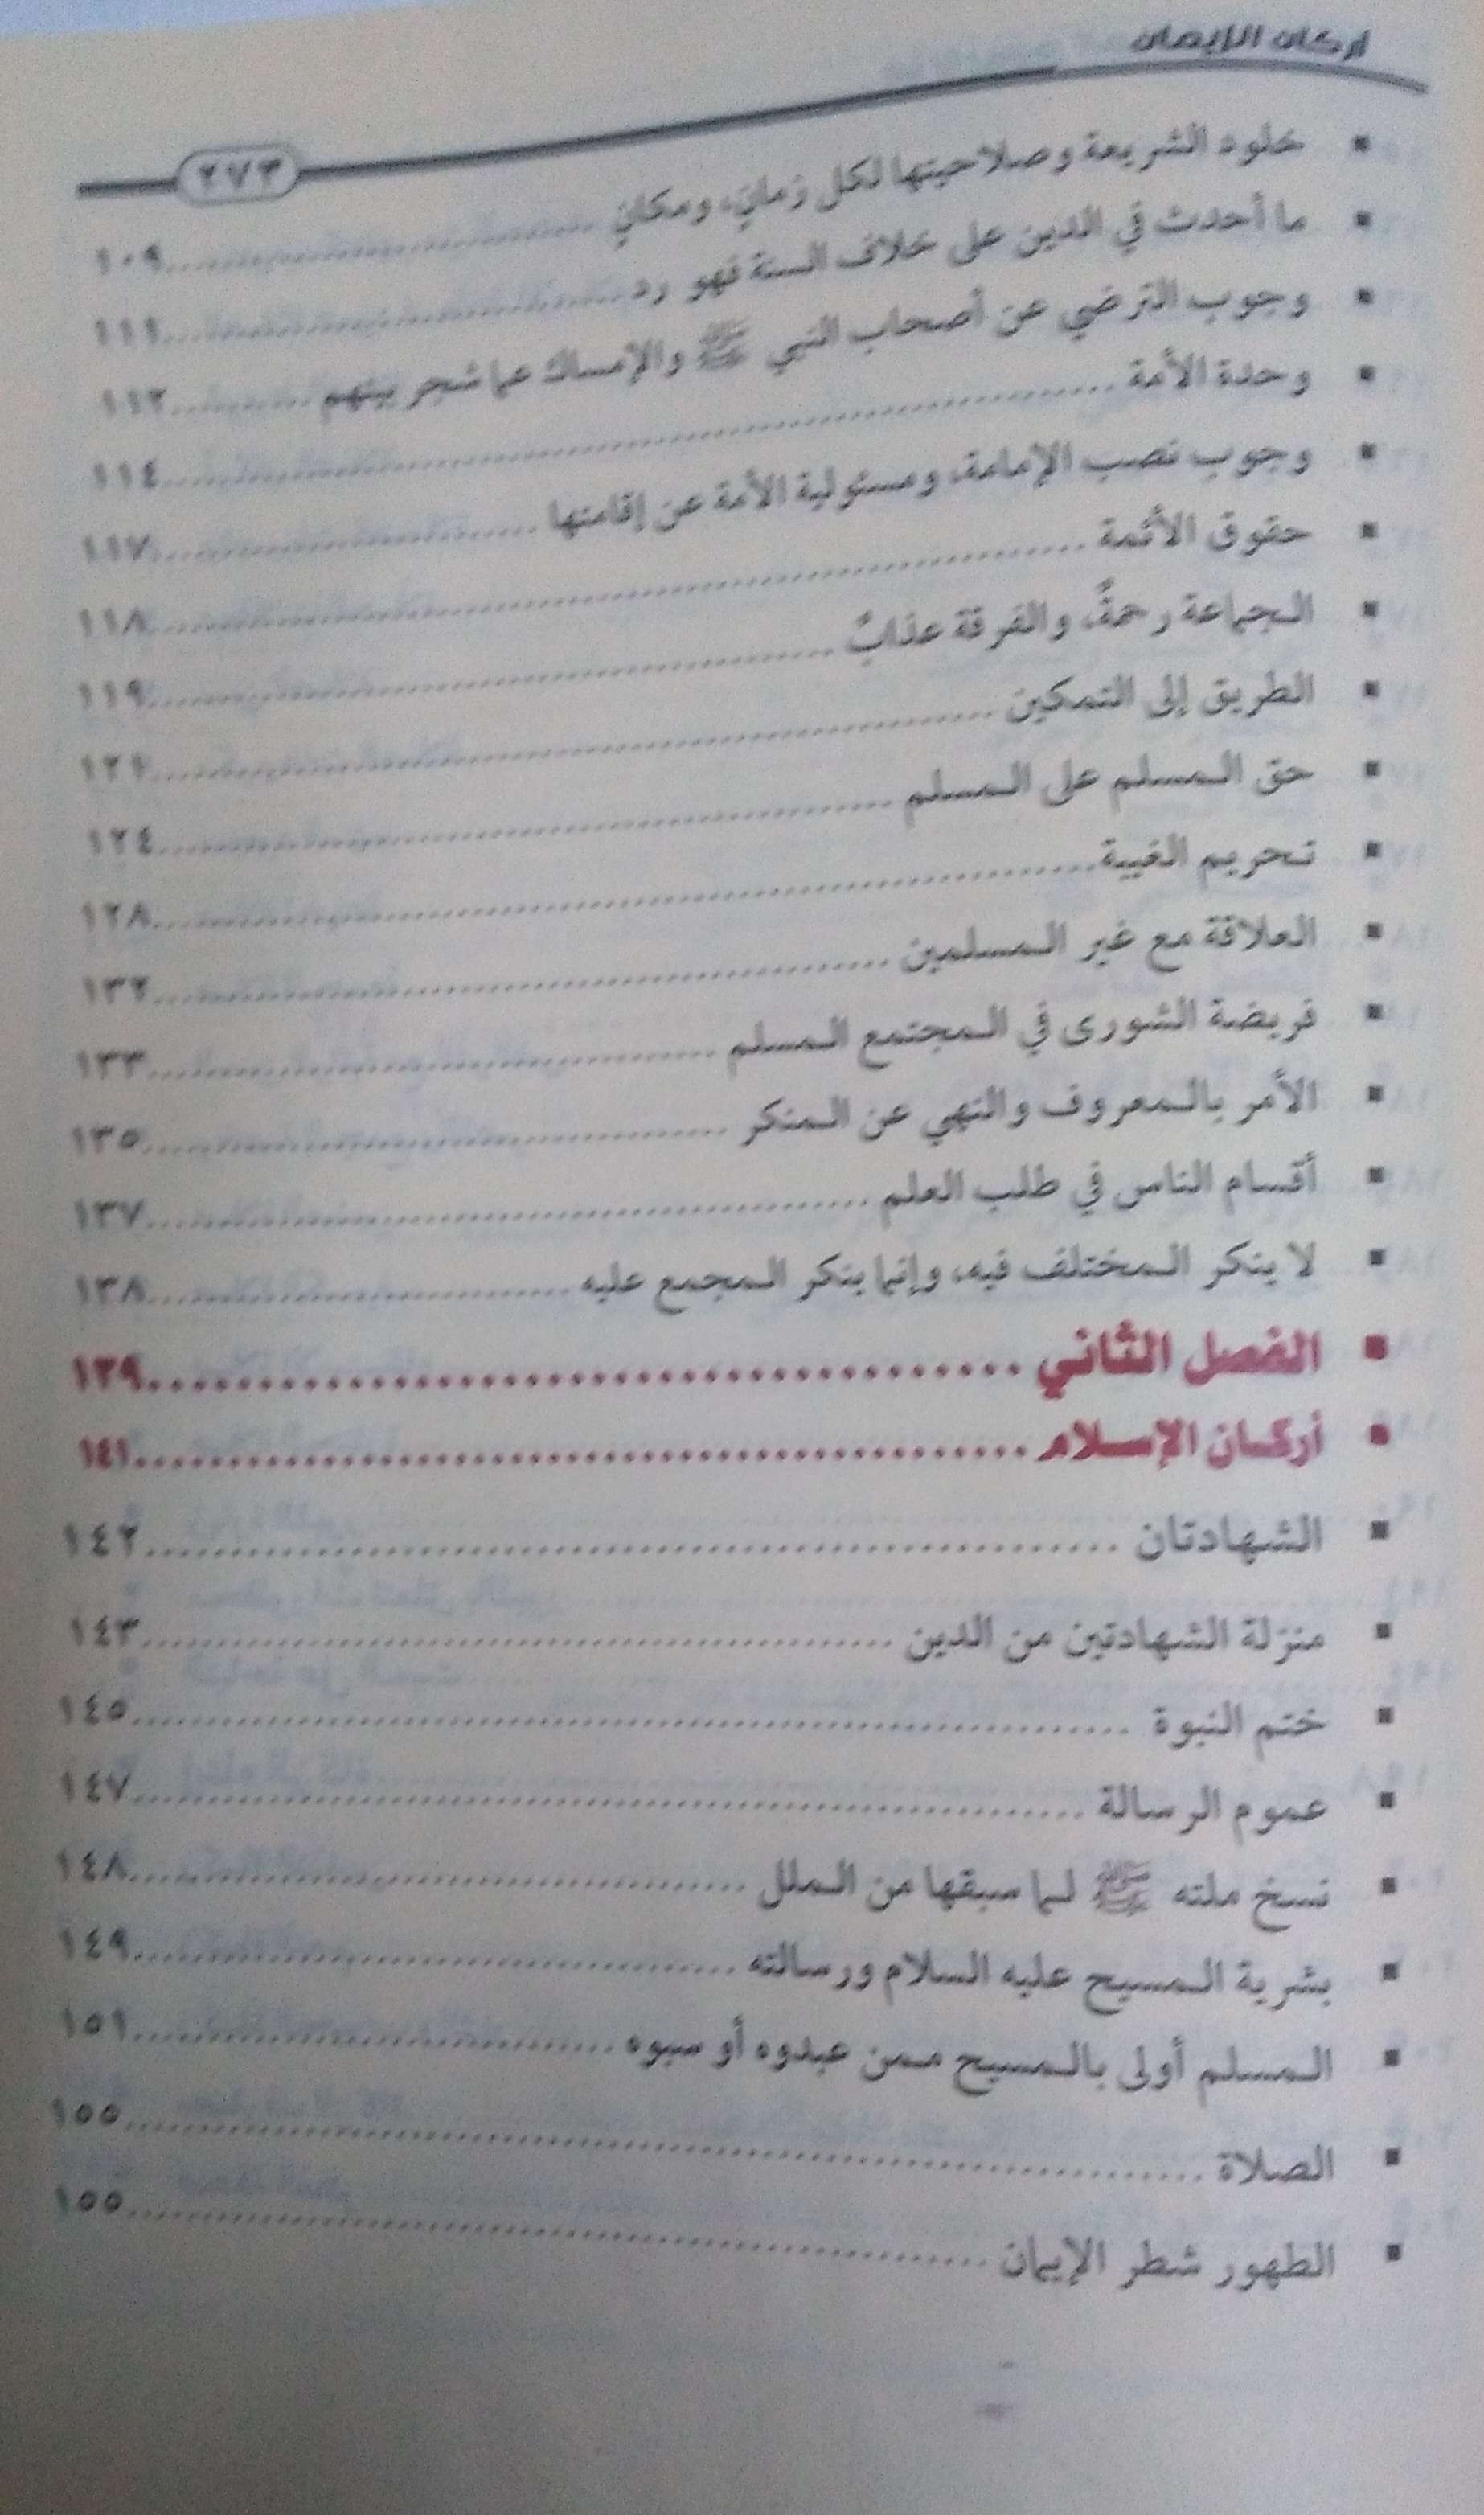 أركان الإيمان
٢٧٣
▪ خلود الشريعة وصلاحيتها لكل زمانٍ، ومكانٍ ........ ١٠٩
▪ ما أحدث في الدين على خلاف السنة فهو رد ........ ١١١
▪ وجوب الترضي عن أصحاب النبي ﷺ والإمساك عما شجر بينهم ........ ١١٢
▪ وحدة الأمة ........ ١١٤
▪ وجوب نصب الإمامة، ومسئولية الأمة عن إقامتها ........ ١١٧
▪ حقوق الأئمة ........ ١١٨
▪ الـجماعة رحمةٌ، والفرقة عذابٌ ........ ١١٩
▪ الطريق إلى التمكين ........ ١٢١
▪ حق الـمسلم على الـمسلم ........ ١٢٤
▪ تـحريم الغيبة ........ ١٢٨
▪ العلاقة مع غير الـمسلمين ........ ١٣٢
▪ فريضة الشورى في الـمجتمع الـمسلم ........ ١٣٣
▪ الأمر بالـمعروف والنهي عن الـمنكر ........ ١٣٥
▪ أقسام الناس في طلب العلم ........ ١٣٧
▪ لا ينكر الـمختلف فيه، وإنما ينكر الـمجمع عليه ........ ١٣٨
▪ الفصل الثاني ........ ١٣٩
▪ أركـان الإسـلام ........ ١٤١
▪ الشهادتان ........ ١٤٢
▪ منزلة الشهادتين من الدين ........ ١٤٣
▪ ختم النبوة ........ ١٤٥
▪ عموم الرسالة ........ ١٤٧
▪ نسخ ملته ﷺ لـما سبقها من الـملل ........ ١٤٨
▪ بشرية الـمسيح عليه السلام ورسالته ........ ١٤٩
▪ الـمسلم أولى بالـمسيح مـمن عبدوه أو سبوه ........ ١٥١
▪ الصلاة ........ ١٥٥
▪ الطهور شطر الإيمان ........ ١٥٥